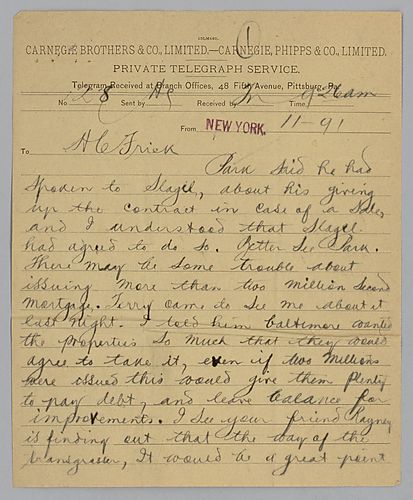 1
CARNEGIE BROTHERS & CO., LIMITED.—CARNEGIE, PHIPPS & CO., LIMITED.
PRIVATE TELEGRAPH SERVICE.
Telegram Received at Branch Offices, 48 Fifth Avenue, Pittsburg, Pa.
No 28 Sent by Received by Time, 926am
From NEW YORK. 11-91
To H C Frick
Park said he had
spoken to Slagle, about his giving
up the contract in case of a sale,
and I understood that Slagle
had agreed to do so. Better see Park.
There may be some trouble about
issuing more than two million second
mortgage. Terry came to see me about it
last night. I told him baltimore wanted
the properties so much that they would
agree to take it, even if two millions
were issued this would give them plenty
to pay debt, and leave balance for
improvements. I see your friend Rayney
is finding out that the way of the
transgressor, It would be a great point